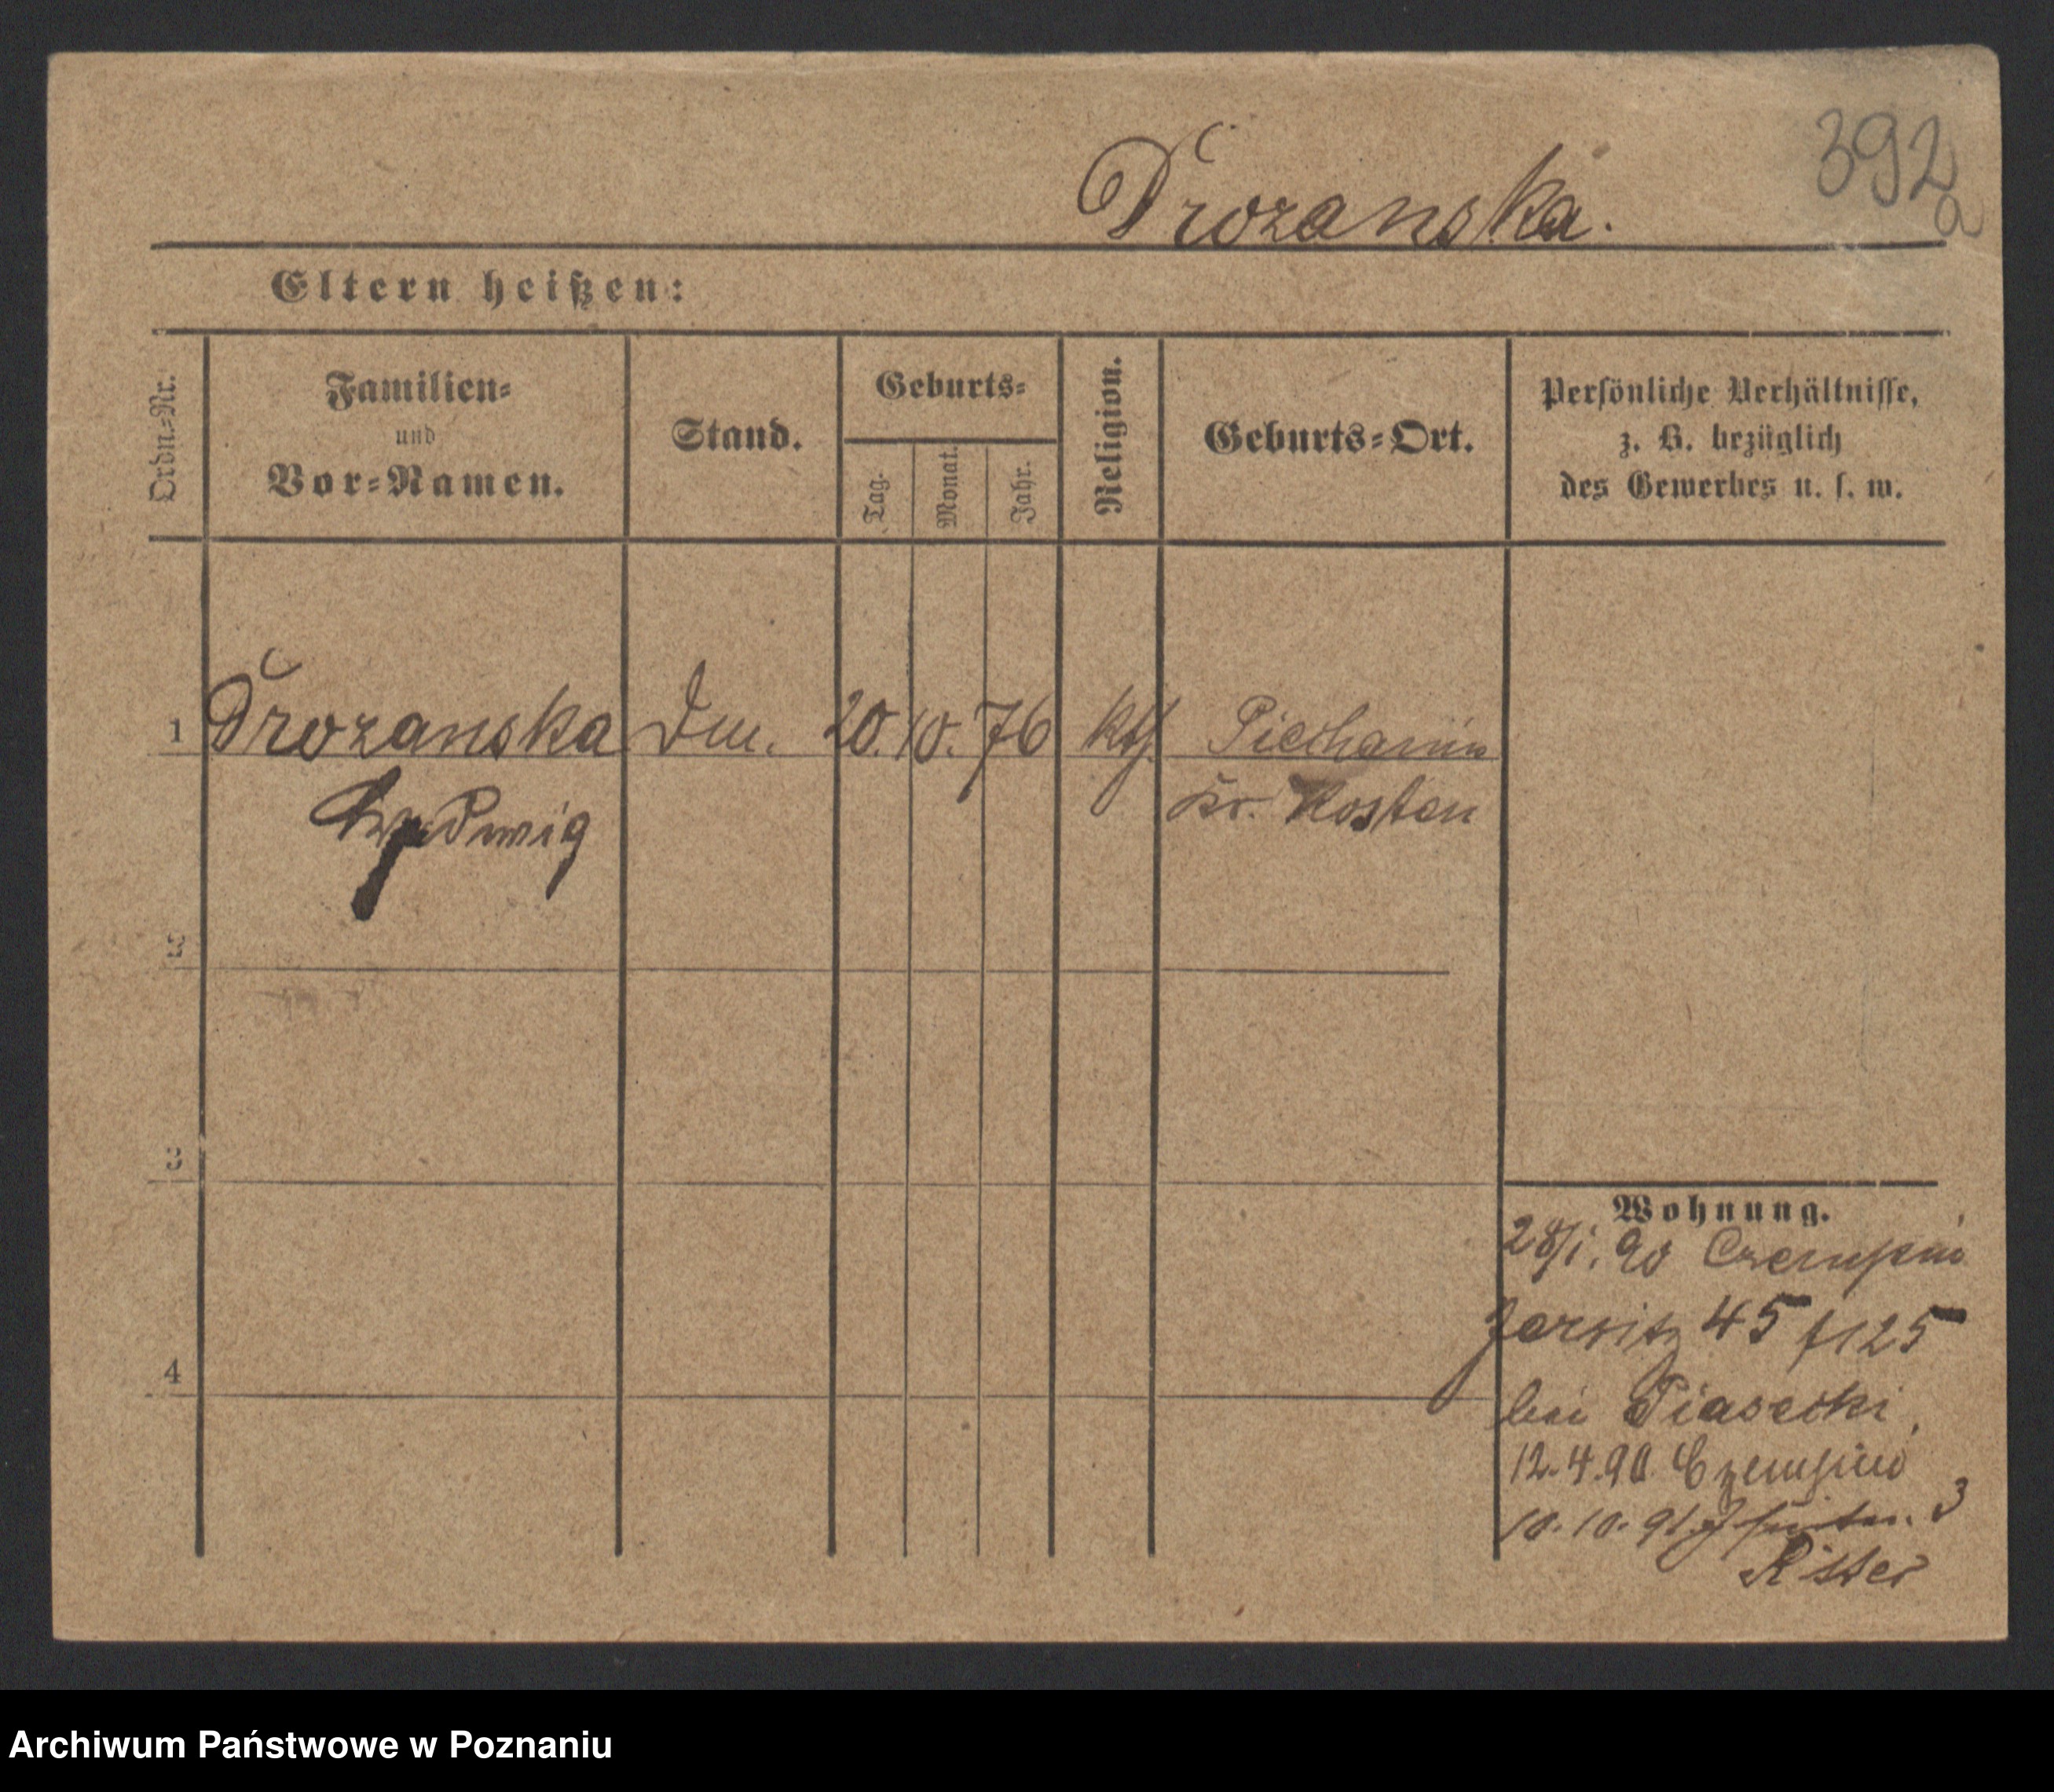 392
a
Drozanska.
Eltern heißen:
Ordn.-Nr.
Familien-
und
Vor-Namen.
Stand.
Geburts-
Tag.
Monat.
Jahr.
Religion.
Geburts-Ort.
Persönliche Verhältnisse,
z. B. bezüglich
des Gewerbes u. s. w.
1 Drozanska 20. 10. 76 kth. Piechanin
Hedwig Kr. Kosten
2
3
4
Wohnung.
28/1. 90 Czempin
Jersitz 45 f 125
bei Piasecki
12. 4. 90 Czempin
10. 10. 91 3
Ritter
Archiwum Państwowe w Poznaniu